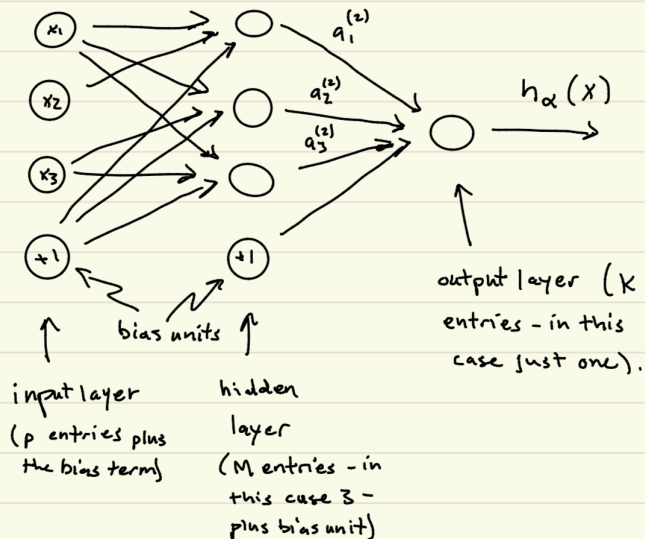 x1
x2
x3
+1
+1
a₁⁽²⁾
a₂⁽²⁾
a₃⁽²⁾
h_α(x)
bias units
input layer
(p entries plus
the bias term)
hidden
layer
(M entries - in
this case 3 -
plus bias unit)
output layer (K
entries - in this
case just one).